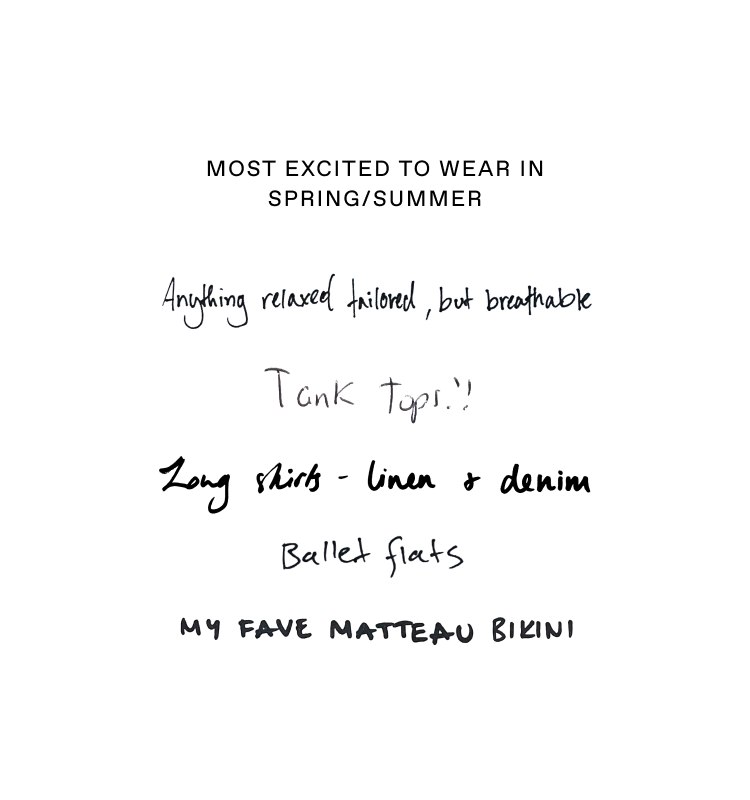 MOST EXCITED TO WEAR IN
SPRING/SUMMER
Anything relaxed tailored, but breathable
Tank Tops!!
Long shirts - linen & denim
Ballet flats
MY FAVE MATTEAU BIKINI